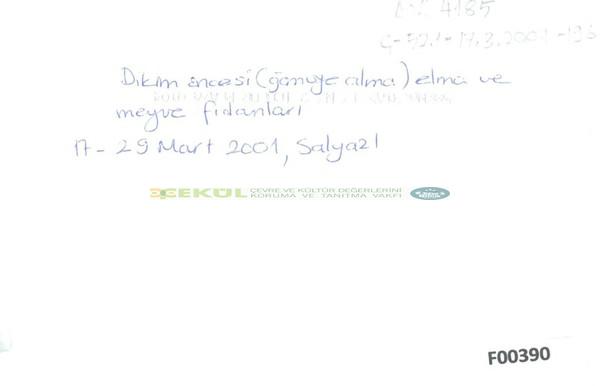 4185
Ç-521-17.3.2001-196
Dikim öncesi (gömüye alma) elma ve
meyve fidanları
17-29 Mart 2001, Salyazı
ÇEKÜL ÇEVRE VE KÜLTÜR DEĞERLERİNİ
KORUMA VE TANITMA VAKFI
F00390